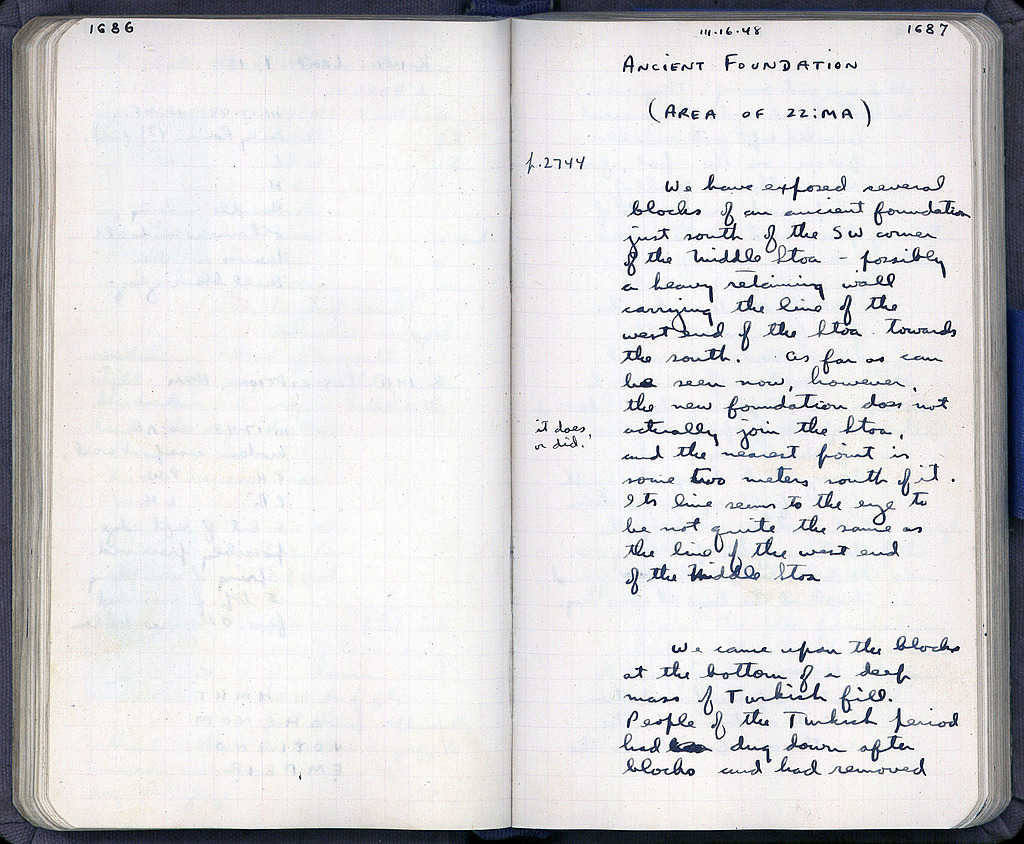 1686
III·16·48
1687
ANCIENT FOUNDATION
(AREA OF 22:MA)
p.2744
We have exposed several
blocks of an ancient foundation
just south of the SW corner
of the Middle Stoa - possibly
a heavy retaining wall
carrying the line of the
west end of the Stoa towards
the south. As far as can
be seen now, however,
the new foundation does not
actually join the Stoa,
it does
or did!
and the nearest point is
some two meters south of it.
Its line seems to the eye to
be not quite the same as
the line of the west end
of the Middle Stoa
We came upon the blocks
at the bottom of a deep
mass of Turkish fill.
People of the Turkish period
had dug down after
blocks and had removed